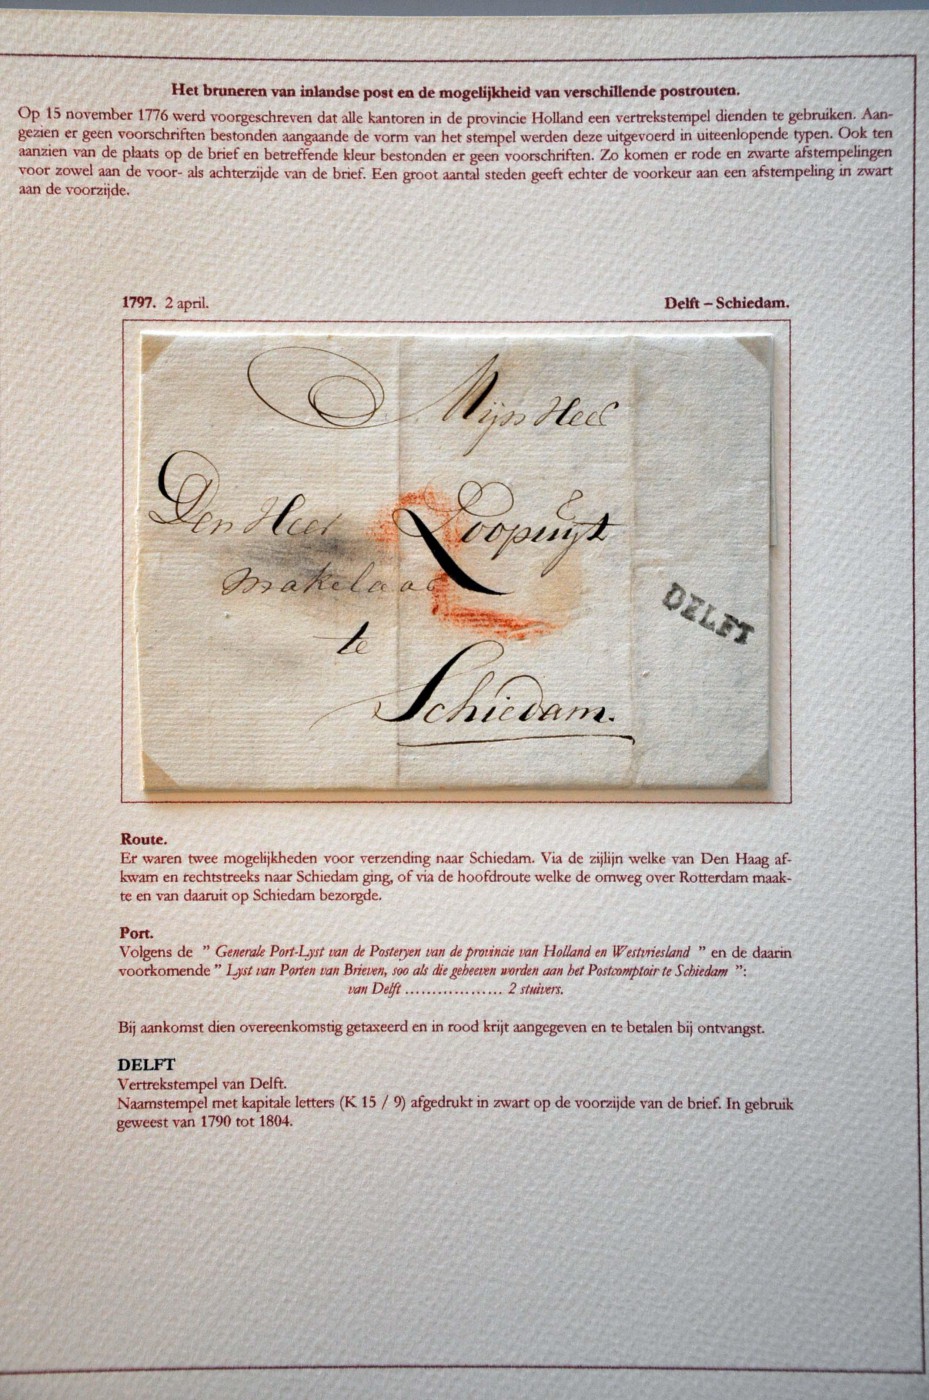 Het bruneren van inlandse post en de mogelijkheid van verschillende postrouten.
Op 15 november 1776 werd voorgeschreven dat alle kantoren in de provincie Holland een vertrekstempel dienden te gebruiken. Aan-
gezien er geen voorschriften bestonden aangaande de vorm van het stempel werden deze uitgevoerd in uiteenlopende typen. Ook ten
aanzien van de plaats op de brief en betreffende kleur bestonden er geen voorschriften. Zo komen er rode en zwarte afstempelingen
voor zowel aan de voor- als achterzijde van de brief. Een groot aantal steden geeft echter de voorkeur aan een afstempeling in zwart
aan de voorzijde.
1797. 2 april. Delft – Schiedam.
Mijn Heer
Den Heer Loopuijt
makelaar
te
Schiedam.
DELFT
Route.
Er waren twee mogelijkheden voor verzending naar Schiedam. Via de zijlijn welke van Den Haag af-
kwam en rechtstreeks naar Schiedam ging, of via de hoofdroute welke de omweg over Rotterdam maak-
te en van daaruit op Schiedam bezorgde.
Port.
Volgens de ” Generale Port-Lyst van de Posteryen van de provincie van Holland en Westvriesland ” en de daarin
voorkomende ” Lyst van Porten van Brieven, soo als die geheeven worden aan het Postcomptoir te Schiedam ”:
van Delft .................. 2 stuivers.
Bij aankomst dien overeenkomstig getaxeerd en in rood krijt aangegeven en te betalen bij ontvangst.
DELFT
Vertrekstempel van Delft.
Naamstempel met kapitale letters (K 15 / 9) afgedrukt in zwart op de voorzijde van de brief. In gebruik
geweest van 1790 tot 1804.